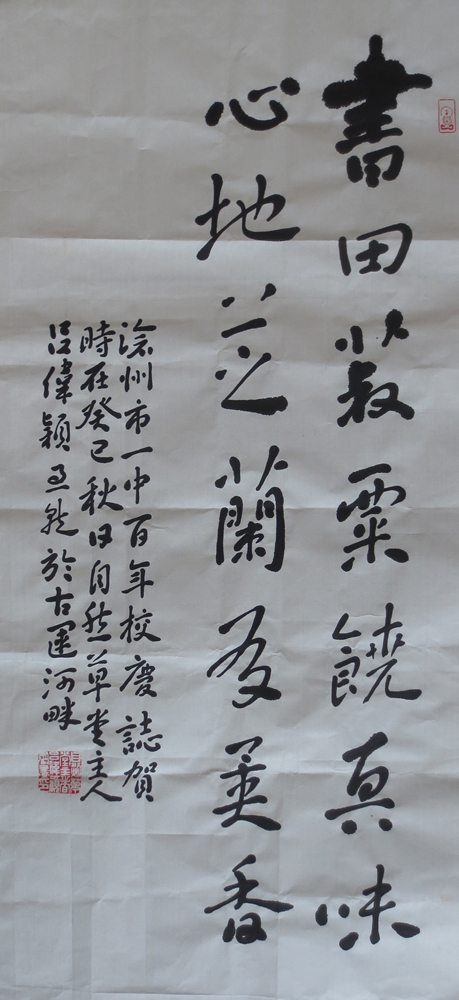 書田菽粟饒真味
心地芝蘭發美香
滄州市一中百年校慶誌賀
時在癸巳秋日自然草堂主人
呂偉穎於古運河畔